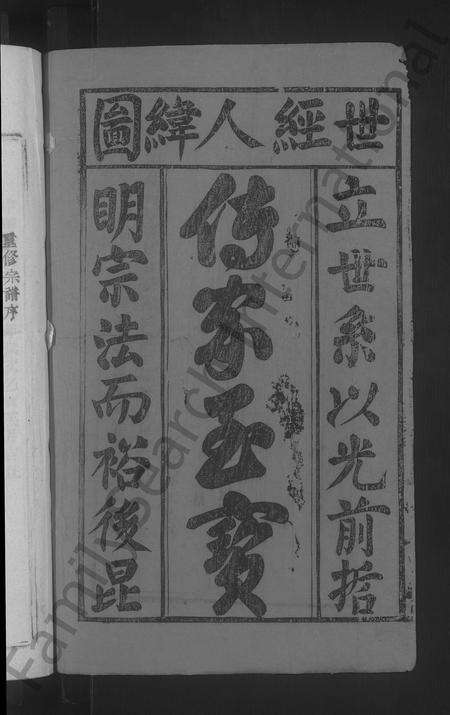 世經人緯圖
立世系以光前哲
傳家至寶
明宗法而裕後昆
重修宗譜序
FamilySearch International